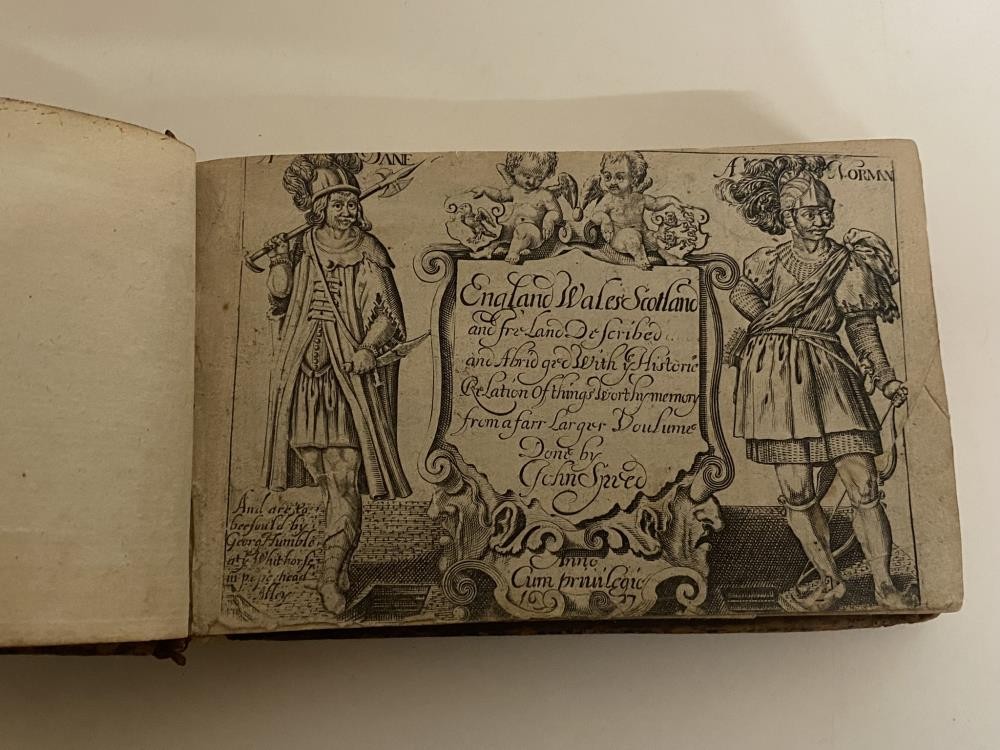 A DANE
A NORMAN
England Wales Scotland
and Ireland Described
and Abridged With ye Historie
Relation Of things Worthy memory
from a farr Larger Voulume
Done by
John Speed
And are to
bee sould by
Georg Humble
at ye Whithorse
in popeshead
Alley
Anno
Cum privilegio
16 27